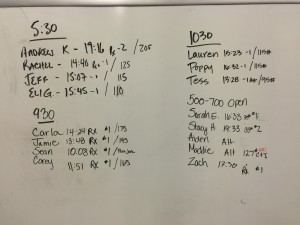 5:30
ANDREW K - 19:16 Rx-2 / 205
RACHEL - 14:40 Rx-1 / 125
JEFF - 15:07 -1 / 115
ELI G. - 15:45 -1 / 110
930
Carla 14:24 Rx #1 /175
Jamie 13:48 Rx #1 /145
Sean 10:08 Rx #1 /
Corey 11:51 Rx #1 /165
1030
Lauren 15:23 -1/115#
Poppy 16:32 -1/115#
Tess 13:28 -1 /95#
500-700 Open
Sarah E. 16:33 #1
Stacy H 19:33 #2
Aiden Alt
Maddie Alt 127#
Zach 17:30 Rx #1